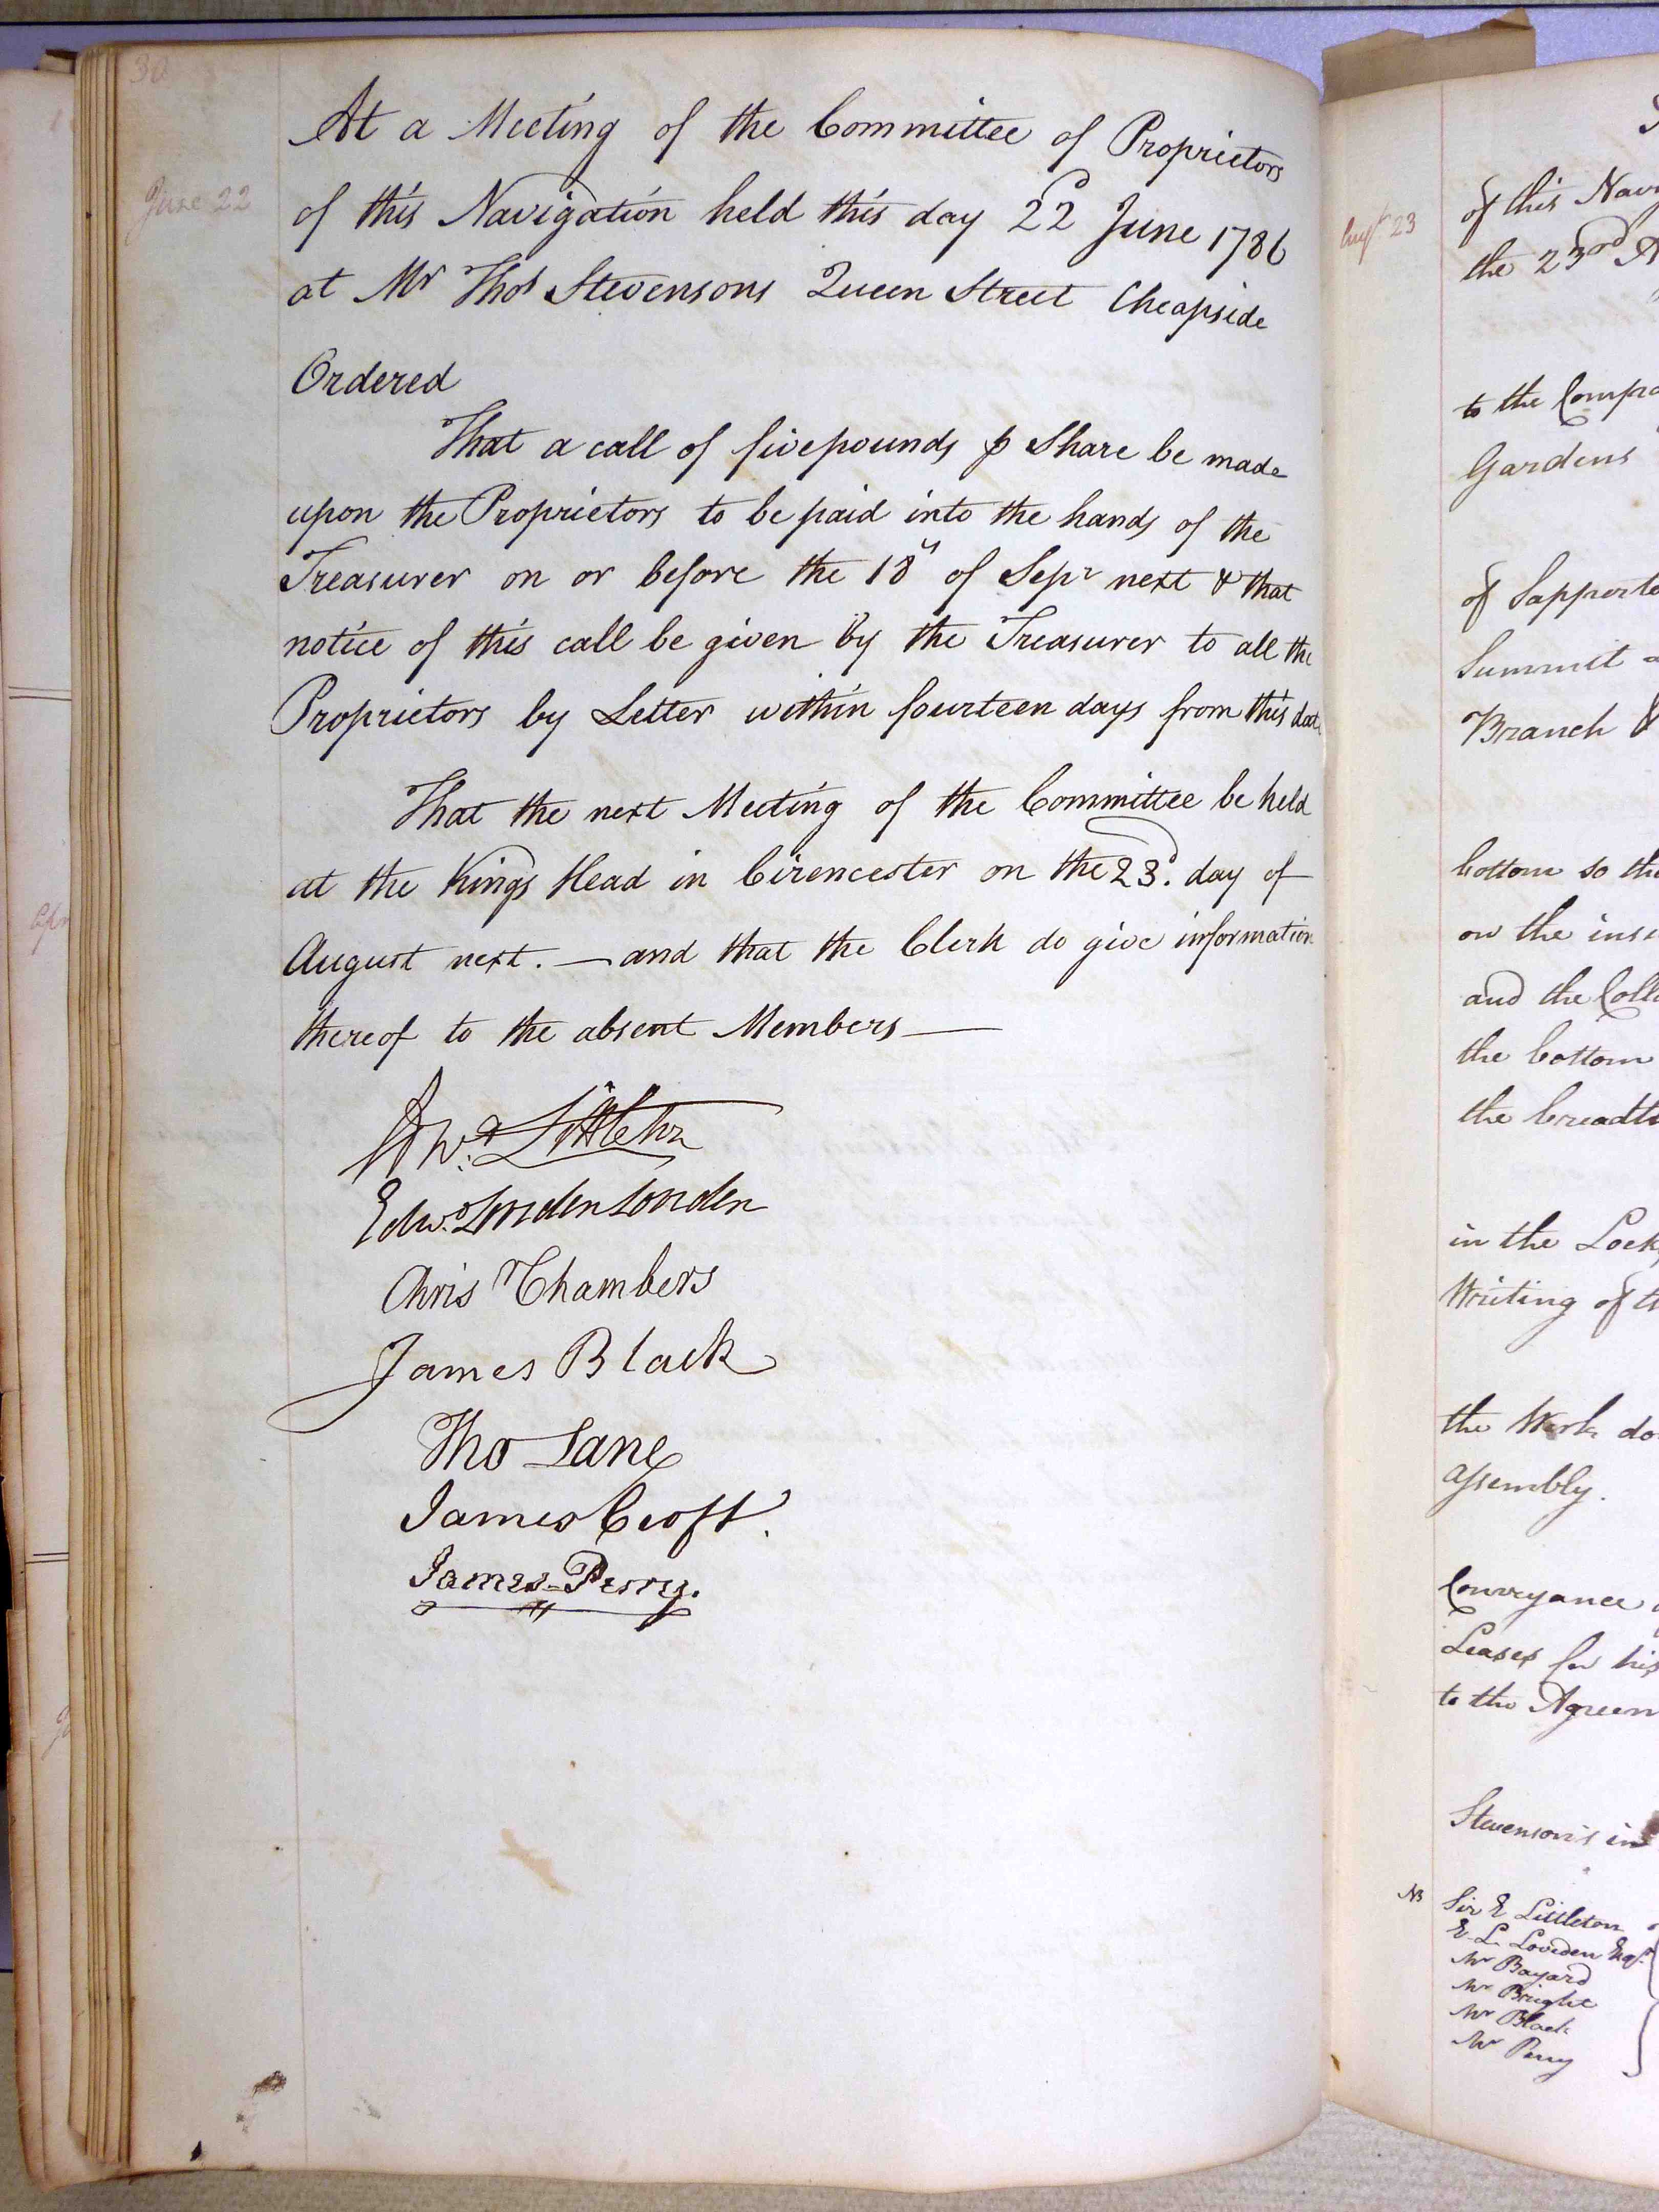 30
June 22
At a Meeting of the Committee of Proprietors
of this Navigation held this day 22d June 1786
at Mr Thos Stevensons Queen Street Cheapside
Ordered
That a call of five pounds ⅌ Share be made
upon the Proprietors to be paid into the hands of the
Treasurer on or before the 18th of Sepr next & that
notice of this call be given by the Treasurer to all the
Proprietors by Letter within fourteen days from this date
That the next Meeting of the Committee be held
at the Kings Head in Cirencester on the 23d. day of
August next. — and that the Clerk do give information
thereof to the absent Members —
Edwd Littleton
Edw. Loveden Loveden
Chris Chambers
James Black
Tho Lane
James Croft.
James Perry.
Augt 23
of this Navi
the 23rd A
to the Compa
Gardens
of Sapperto
Summit a
Branch &
bottom so tha
on the insi
and the Colla
the bottom
the breadth
in the Lock
Writing of t
the Work do
assembly.
Conveyance
Leases for his
to the Agreem
Stevenson's in
NB Sir E Littleton
E. L. Loveden Esqr
Mr Bayard
Mr Bright
Mr Black
Mr Perry